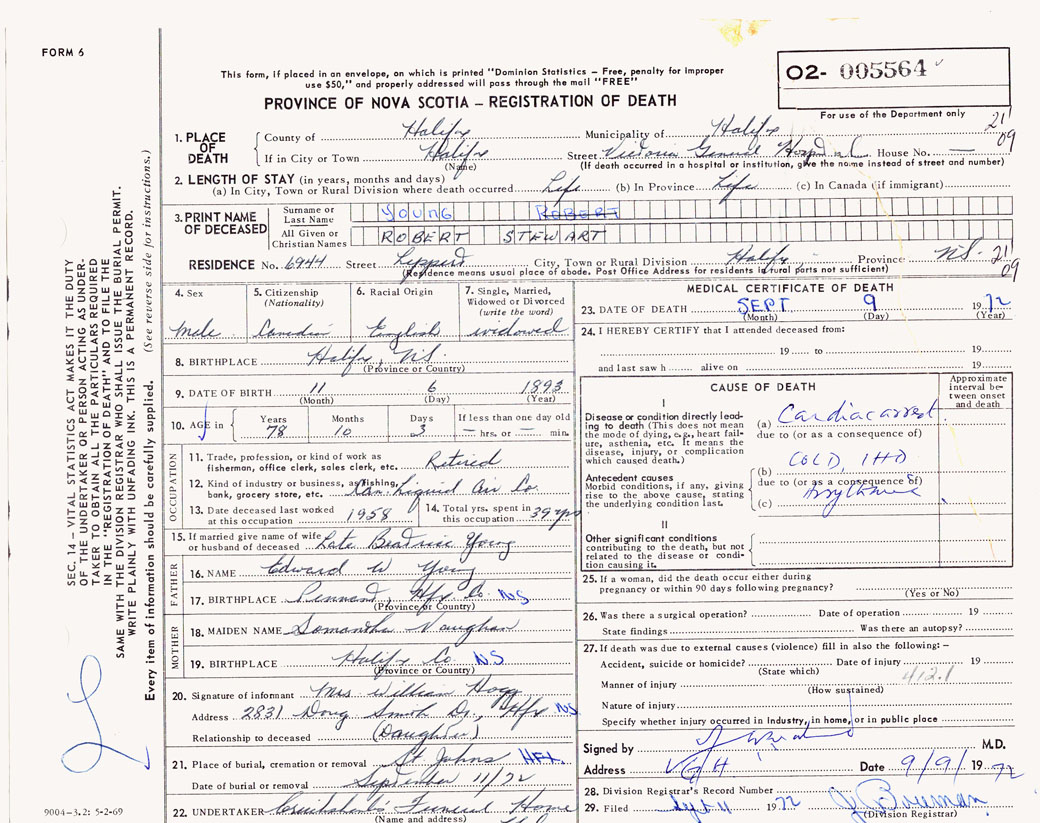 FORM 6
This form, if placed in an envelope, on which is printed "Dominion Statistics – Free, penalty for improper
use $50," and properly addressed will pass through the mail "FREE"
PROVINCE OF NOVA SCOTIA – REGISTRATION OF DEATH
O2- 005564
For use of the Department only
21
09
1. PLACE OF DEATH
County of Halifax Municipality of Halifax
If in City or Town Halifax Street Victoria General Hospital House No. —
(Name) (If death occurred in a hospital or institution, give the name instead of street and number)
2. LENGTH OF STAY (in years, months and days)
(a) In City, Town or Rural Division where death occurred Life (b) In Province Life (c) In Canada (if immigrant)
3. PRINT NAME OF DECEASED
Surname or Last Name YOUNG ROBERT
All Given or Christian Names ROBERT STEWART
RESIDENCE No. 6944 Street City, Town or Rural Division Halifax Province N.S. 21
(Residence means usual place of abode. Post Office Address for residents in rural parts not sufficient) 09
4. Sex
Male
5. Citizenship (Nationality)
Canadian
6. Racial Origin
English
7. Single, Married, Widowed or Divorced (write the word)
widowed
8. BIRTHPLACE Halifax, N.S.
(Province or Country)
9. DATE OF BIRTH 11 6 1893
(Month) (Day) (Year)
10. AGE in Years Months Days If less than one day old
78 10 3 — hrs. or — min.
OCCUPATION
11. Trade, profession, or kind of work as
fisherman, office clerk, sales clerk, etc. Retired
12. Kind of industry or business, as fishing,
bank, grocery store, etc. Can. Liquid Air Co.
13. Date deceased last worked
at this occupation 1958
14. Total yrs. spent in
this occupation 39 yrs
15. If married give name of wife
or husband of deceased Late Beatrice Young
FATHER
16. NAME Edward W Young
17. BIRTHPLACE Pennant, Hfx Co. NS
(Province or Country)
MOTHER
18. MAIDEN NAME Samantha Vaughan
19. BIRTHPLACE Halifax Co NS
(Province or Country)
20. Signature of informant Mrs William Hogg
Address 2831 Doug Smith Dr., Hfx NS
Relationship to deceased (Daughter)
21. Place of burial, cremation or removal St Johns HFX.
Date of burial or removal September 11/72
22. UNDERTAKER Cruikshank's Funeral Home
(Name and address)
MEDICAL CERTIFICATE OF DEATH
23. DATE OF DEATH SEPT 9 1972
(Month) (Day) (Year)
24. I HEREBY CERTIFY that I attended deceased from:
19 to 19
and last saw h alive on 19
CAUSE OF DEATH
Approximate interval between onset and death
I
Disease or condition directly leading to death (This does not mean the mode of dying, e.g., heart failure, asthenia, etc. It means the disease, injury, or complication which caused death.)
(a) Cardiac arrest
due to (or as a consequence of)
Antecedent causes
Morbid conditions, if any, giving rise to the above cause, stating the underlying condition last.
(b) COLD, IHD
due to (or as a consequence of)
(c)
II
Other significant conditions
contributing to the death, but not related to the disease or condition causing it.
25. If a woman, did the death occur either during
pregnancy or within 90 days following pregnancy?
(Yes or No)
26. Was there a surgical operation? Date of operation 19
State findings Was there an autopsy?
27. If death was due to external causes (violence) fill in also the following: –
Accident, suicide or homicide? Date of injury 19
(State which) 412.1
Manner of injury
(How sustained)
Nature of injury
Specify whether injury occurred in Industry, in home, or in public place
Signed by M.D.
Address VGH Date 9/9/ 1972
28. Division Registrar's Record Number
29. Filed Sept 11 1972 J. Bowman
(Division Registrar)
SEC. 14 – VITAL STATISTICS ACT MAKES IT THE DUTY
OF THE UNDERTAKER OR PERSON ACTING AS UNDER-
TAKER TO OBTAIN ALL THE PARTICULARS REQUIRED
IN THE "REGISTRATION OF DEATH" AND TO FILE THE
SAME WITH THE DIVISION REGISTRAR WHO SHALL ISSUE THE BURIAL PERMIT.
WRITE PLAINLY WITH UNFADING INK. THIS IS A PERMANENT RECORD.
Every item of information should be carefully supplied. (See reverse side for instructions.)
9004-3.2: 5-2-69